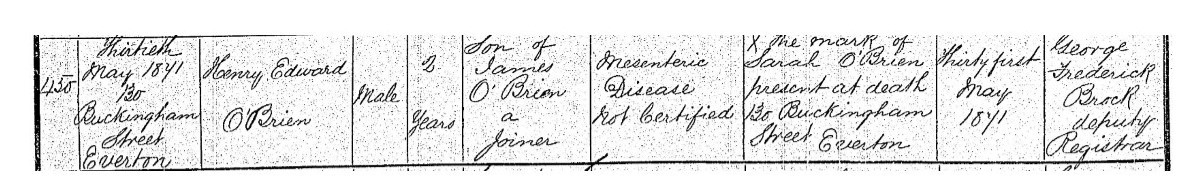 450
Thirtieth
May 1871
130
Buckingham
Street
Everton
Henry Edward
O'Brien
Male
2
Years
Son of
James
O'Brien
a
Joiner
Mesenteric
Disease
Not Certified
X The mark of
Sarah O'Brien
present at death
130 Buckingham
Street Everton
Thirty first
May
1871
George
Frederick
Brock
deputy
Registrar